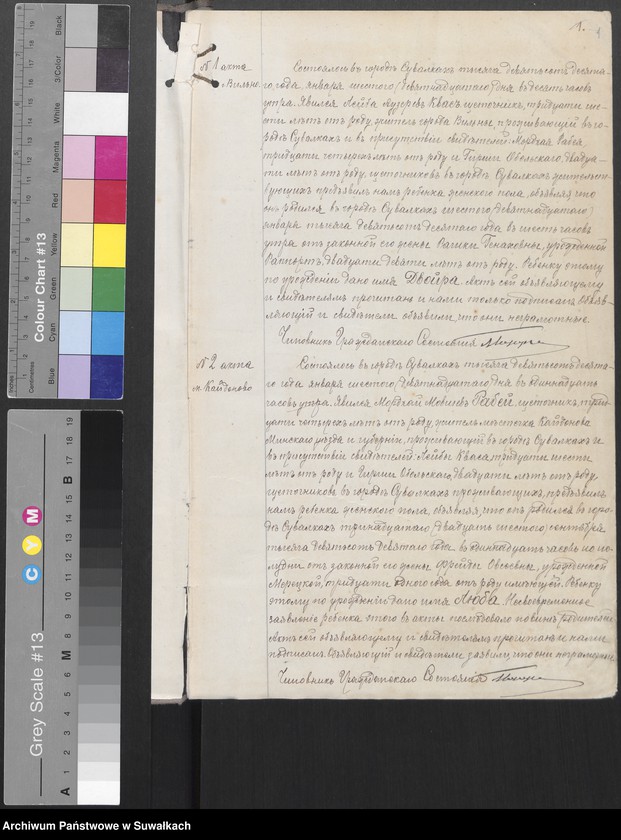 1.
1
№ 1 акта
Вильн.
Состоялось въ городѣ Сувалкахъ тысяча девятьсотъ десята-
го года января шестого /девятнадцатаго/ дня въ десять часовъ
утра. Явился Лейба Квасъ щеточникъ, тридцати ше-
сти лѣтъ отъ роду, житель города Вильны, проживающій въ го-
родѣ Сувалкахъ и въ присутствіи свидѣтелей Мордхая Рабея,
тридцати четырехъ лѣтъ отъ роду и Гирши Овельскаго, двадца-
ти лѣтъ отъ роду, щеточниковъ въ городѣ Сувалкахъ жительст-
вующихъ предъявилъ намъ ребенка женскаго пола, объявляя что
онъ родился въ городѣ Сувалкахъ шестого /девятнадцатаго/
января тысяча девятьсотъ десятаго года въ шесть часовъ
утра отъ законной его жены урожденной
двадцати девяти лѣтъ отъ роду. Ребенку этому
по урожденіи дано имя Двойра. Актъ сей объявляющему
и свидѣтелямъ прочитанъ и нами только подписанъ. Объяв-
ляющій и свидѣтели объявили, что они неграмотные.
Чиновникъ Гражданскаго Состоянія
№ 2 акта
м. Кайданово
Состоялось въ городѣ Сувалкахъ тысяча девятьсотъ десята-
го года января шестого /девятнадцатаго/ дня въ одиннадцать
часовъ утра. Явился Мордхай Мовшевъ Рабей щеточникъ, трид-
цати четырехъ лѣтъ отъ роду, житель мѣстечка Кайданова
Минскаго уѣзда и губерніи, проживающій въ городѣ Сувалкахъ и
въ присутствіи свидѣтелей: Лейбы Кваса, тридцати шести
лѣтъ отъ роду и Гирши Овельскаго, двадцати лѣтъ отъ роду,
щеточниковъ въ городѣ Сувалкахъ проживающихъ, предъявилъ
намъ ребенка женскаго пола, объявляя, что онъ родился въ горо-
дѣ Сувалкахъ тринадцатаго /двадцать шестого/ сентября
тысяча девятьсотъ девятаго года въ одиннадцать часовъ по по-
лудни отъ законной его жены Фрейды Овсеевны, урожденной
тридцати одного года отъ роду имѣющей. Ребенку
этому по урожденіи дано имя Люба. Несвоевременное
заявленіе ребенка этого въ акты послѣдовало по винѣ родителей
Актъ сей объявляющему и свидѣтелямъ прочитанъ и нами
подписанъ. Объявляющій и свидѣтели заявили, что они неграмотны.
Чиновникъ Гражданскаго Состоянія
Colour Chart #13
Black
3/Color
White
Magenta
Red
Yellow
Green
Cyan
Blue
Inches
Centimetres
Grey Scale #13
C Y M
A 1 2 3 4 5 6 M 8 9 10 11 12 13 14 15 B 17 18 19
Archiwum Państwowe w Suwałkach